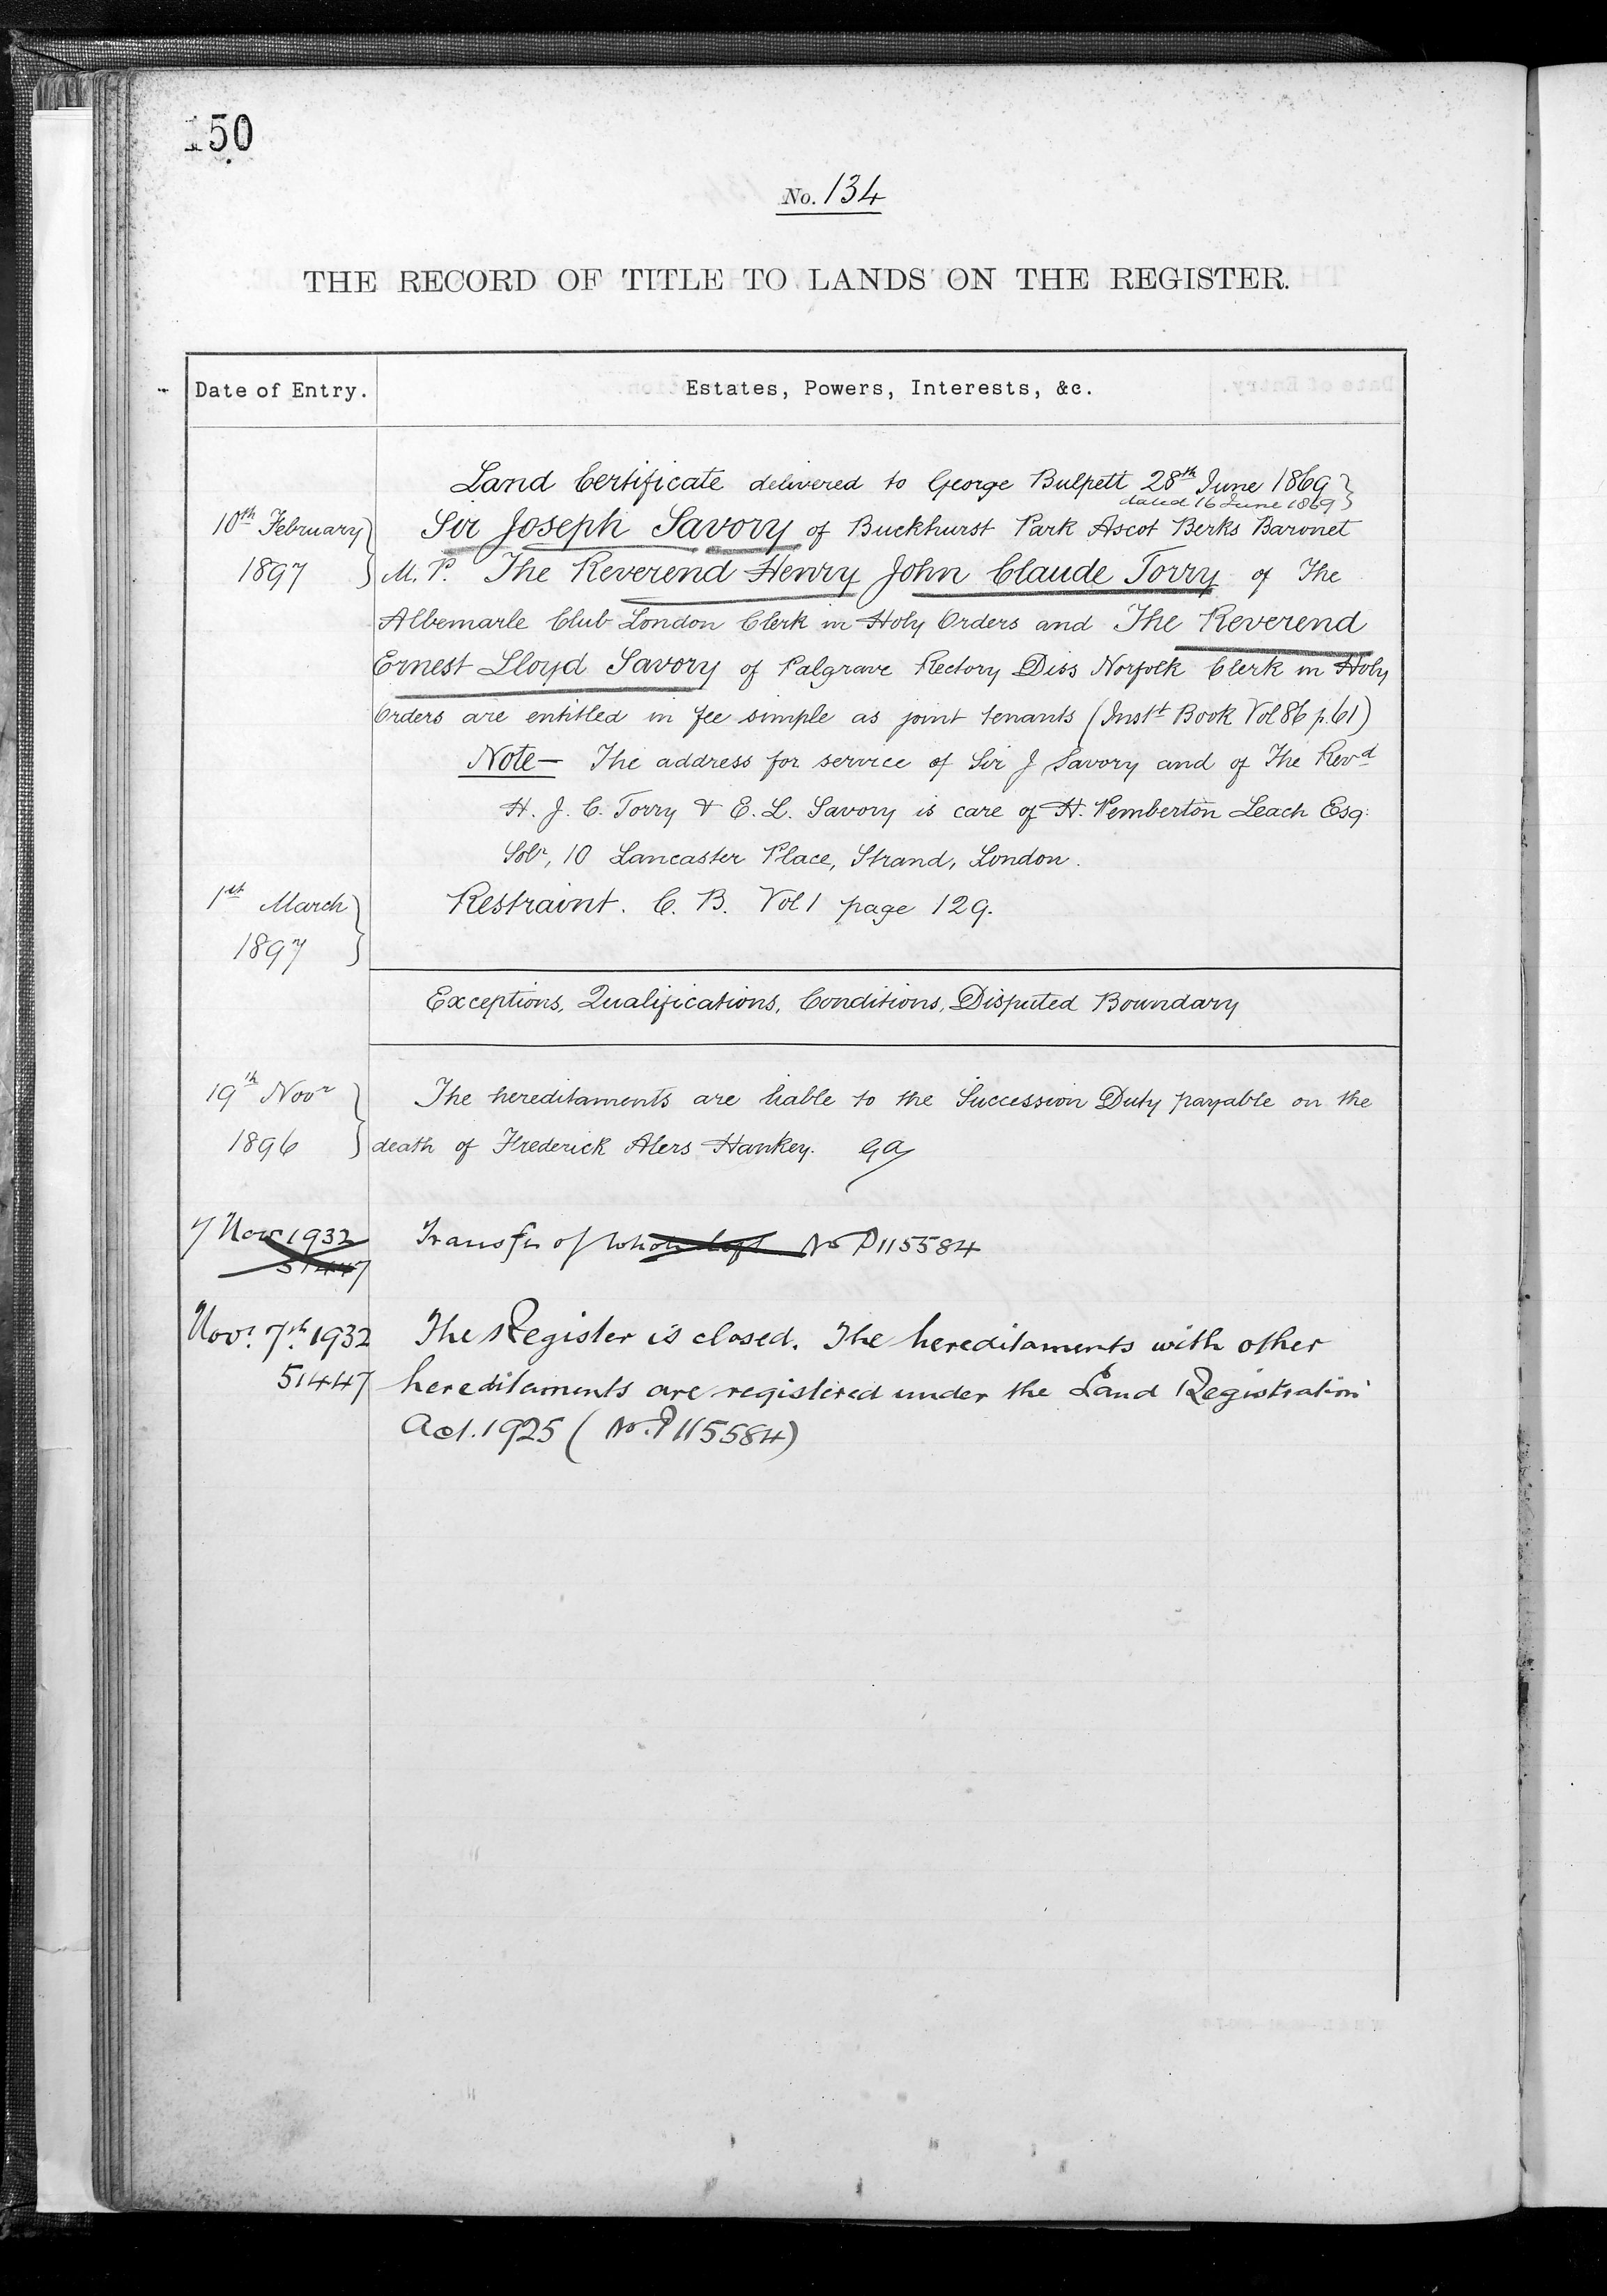 150
No. 134
THE RECORD OF TITLE TO LANDS ON THE REGISTER.
Date of Entry.
Estates, Powers, Interests, &c.
Land Certificate delivered to George Bulpett 28th June 1869
dated 16 June 1869
10th February
1897
Sir Joseph Savory of Buckhurst Park Ascot Berks Baronet
M. P. The Reverend Henry John Claude Torry of The
Albemarle Club London Clerk in Holy Orders and The Reverend
Ernest Lloyd Savory of Palgrave Rectory Diss Norfolk Clerk in Holy
Orders are entitled in fee simple as joint tenants (Instt Book Vol 86 p. 61)
Note — The address for service of Sir J Savory and of The Revd
H. J. C. Torry & E. L. Savory is care of H. Pemberton Leach Esq:
Solr, 10 Lancaster Place, Strand, London.
1st March
1897
Restraint. C. B. Vol 1 page 129.
Exceptions, Qualifications, Conditions, Disputed Boundary
19th Novr
1896
The hereditaments are liable to the Succession Duty payable on the
death of Frederick Alers Hankey. GA
7 Nov 1932
51447
Transfer of whole No P115584
Novr 7th 1932
51447
The Register is closed. The hereditaments with other
hereditaments are registered under the Land Registration
Act. 1925 ( No. P 115584)